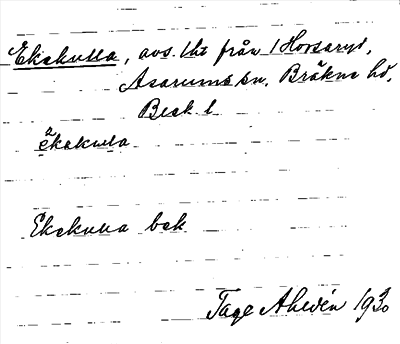 Ekekulla, avs. lht från 1 Horsaryd,
Asarums sn. Bräkne hd,
Blek l
ekekulla
Ekekulla bek
Tage Ahldén 1930